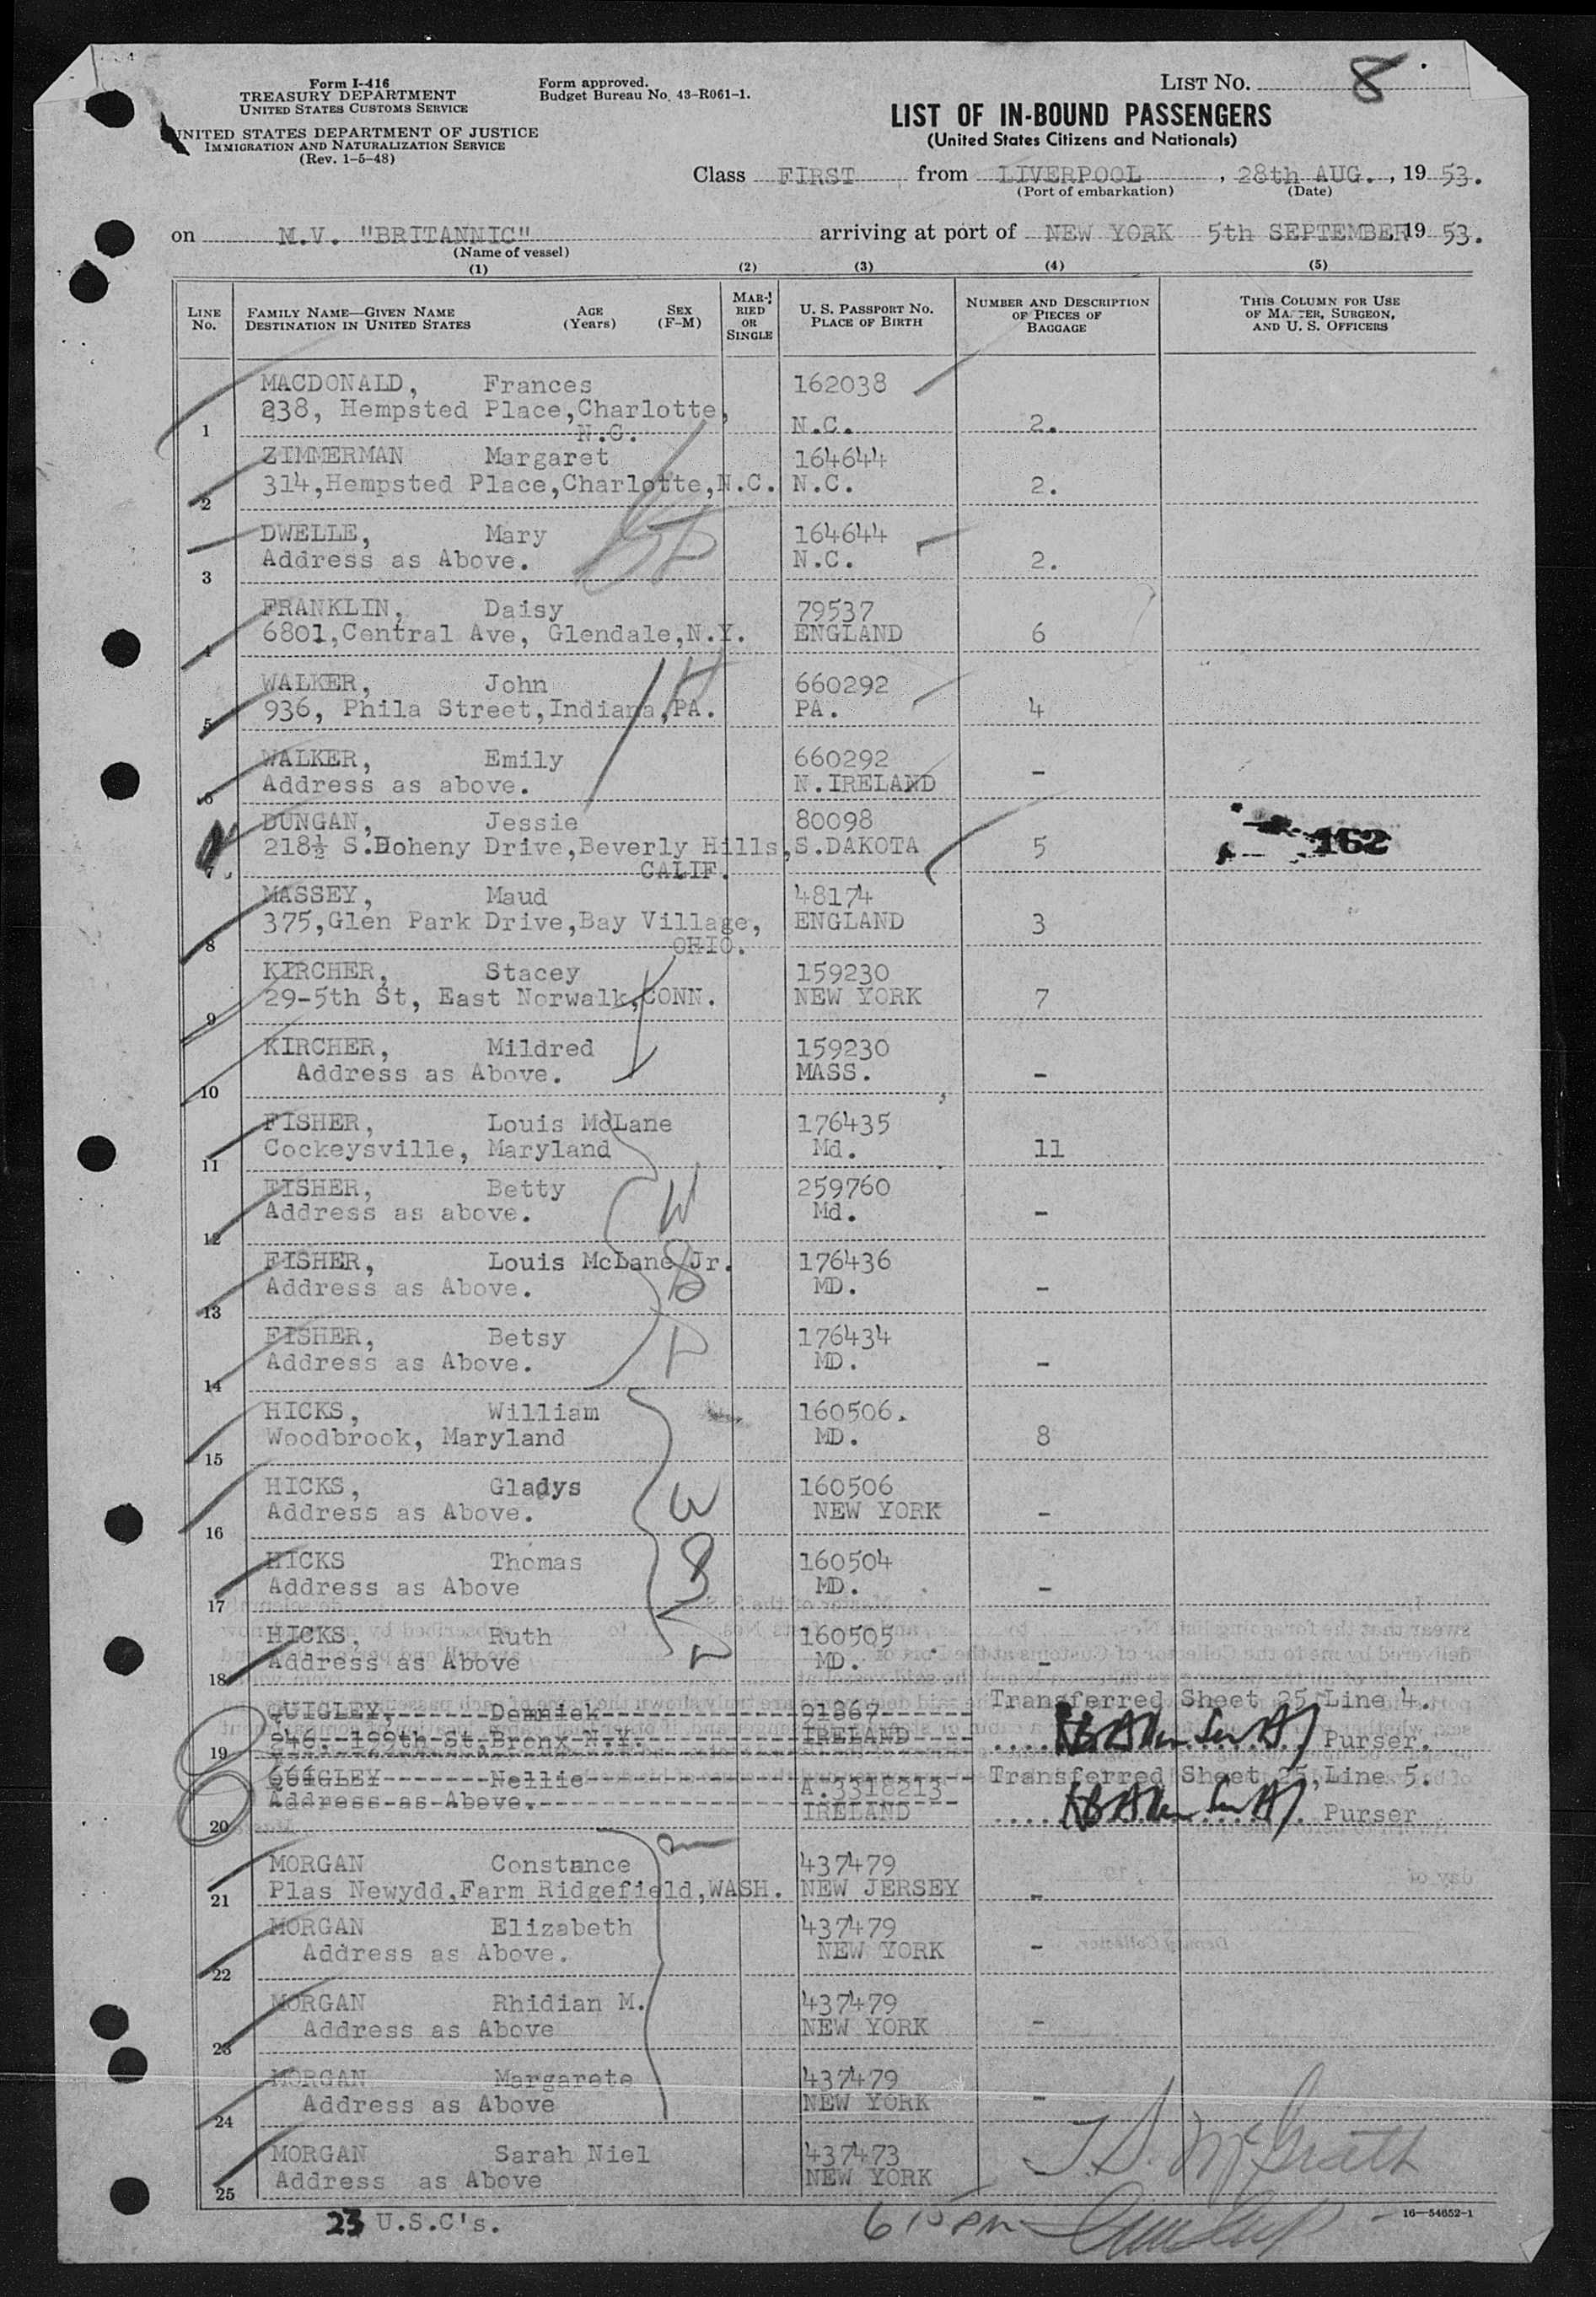 Form I-416
TREASURY DEPARTMENT
UNITED STATES CUSTOMS SERVICE
UNITED STATES DEPARTMENT OF JUSTICE
IMMIGRATION AND NATURALIZATION SERVICE
(Rev. 1-5-48)
Form approved.
Budget Bureau No. 43-R061-1.
LIST NO. 8
LIST OF IN-BOUND PASSENGERS
(United States Citizens and Nationals)
Class FIRST from LIVERPOOL, 28th AUG., 19 53.
(Port of embarkation) (Date)
on M.V. "BRITANNIC" arriving at port of NEW YORK 5th SEPTEMBER 19 53.
(Name of vessel)
(1) (2) (3) (4) (5)
LINE NO.
FAMILY NAME—GIVEN NAME
DESTINATION IN UNITED STATES
AGE (Years)
SEX (F-M)
MARRIED OR SINGLE
U. S. PASSPORT NO.
PLACE OF BIRTH
NUMBER AND DESCRIPTION
OF PIECES OF
BAGGAGE
THIS COLUMN FOR USE
OF MASTER, SURGEON,
AND U. S. OFFICERS
MACDONALD, Frances 162038
238, Hempsted Place,Charlotte,
1 N.C. N.C. 2.
ZIMMERMAN Margaret 164644
2 314,Hempsted Place,Charlotte,N.C. N.C. 2.
DWELLE, Mary 164644
3 Address as Above. N.C. 2.
FRANKLIN, Daisy 79537
4 6801,Central Ave, Glendale,N.Y. ENGLAND 6
WALKER, John 660292
5 936, Phila Street,Indiana,PA. PA. 4
WALKER, Emily 660292
6 Address as above. N.IRELAND -
DUNGAN, Jessie 80098
218½ S.Doheny Drive,Beverly Hills, S.DAKOTA 5 162
7 CALIF.
MASSEY, Maud 48174
375,Glen Park Drive,Bay Village, ENGLAND 3
8 OHIO.
KIRCHER, Stacey 159230
9 29-5th St, East Norwalk,CONN. NEW YORK 7
KIRCHER, Mildred 159230
10 Address as Above. MASS. -
FISHER, Louis McLane 176435
11 Cockeysville, Maryland Md. 11
FISHER, Betty 259760
12 Address as above. Md. -
FISHER, Louis McLane Jr. 176436
13 Address as Above. MD. -
FISHER, Betsy 176434
14 Address as Above. MD. -
HICKS, William 160506.
15 Woodbrook, Maryland MD. 8
HICKS, Gladys 160506
16 Address as Above. NEW YORK -
HICKS Thomas 160504
17 Address as Above MD. -
HICKS, Ruth 160505
18 Address as Above MD. -
QUIGLEY, 91867 Transferred Sheet 25,Line 4.
19 246, 199th St,Bronx N.Y. IRELAND Purser.
QUIGLEY Nellie A.3318213 Transferred Sheet 25,Line 5.
20 Address as Above. IRELAND Purser
MORGAN Constance 437479
21 Plas Newydd,Farm Ridgefield,WASH. NEW JERSEY -
MORGAN Elizabeth 437479
22 Address as Above. NEW YORK -
MORGAN Rhidian M. 437479
23 Address as Above NEW YORK -
MORGAN Margarete 437479
24 Address as Above NEW YORK -
MORGAN Sarah Niel 437473
25 Address as Above NEW YORK
T.S. McGrath
23 U.S.C's.
6 15 PM
16—54652-1